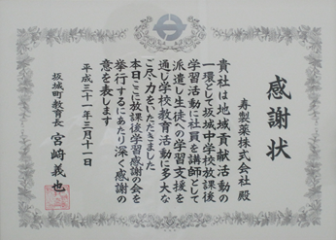 感謝状
寿製薬株式会社 殿
貴社は地域貢献活動の
一環として坂城中学校放課後
学習活動に社員を講師として
派遣し生徒への学習支援を
通し学校教育活動に多大な
ご尽力をいただきました
本日ここに放課後学習感謝の会を
挙行するにあたり深く感謝の
意を表します
平成三十一年三月十一日
坂城町教育長 宮﨑義也